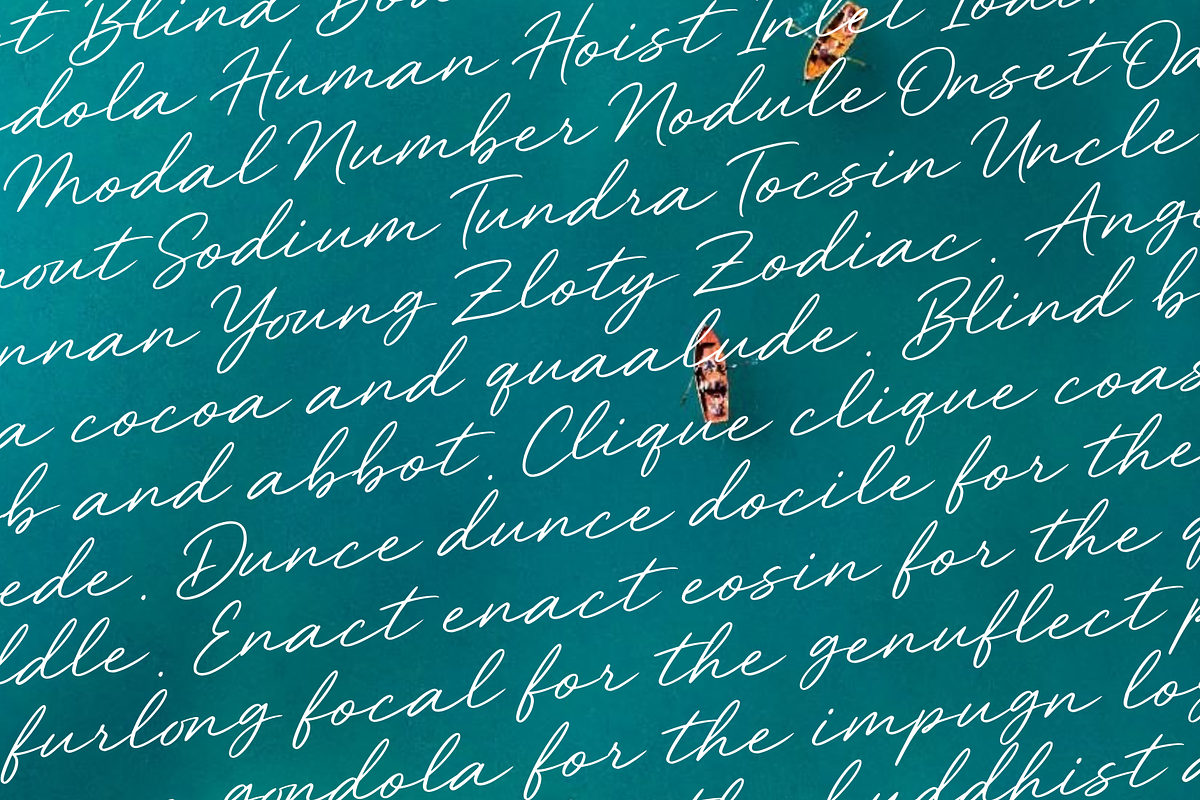 Blind
dola Human Hoist Inlet
Modal Number Nodule Onset
out Sodium Tundra Tocsin Uncle
nnan Young Zloty Zodiac . Ang
a cocoa and quaalude . Blind b
b and abbot . Clique clique coas
ede . Dunce dunce docile for the
ddle . Enact enact eosin for the
furlong focal for the genuflect p
gondola for the impugn lo